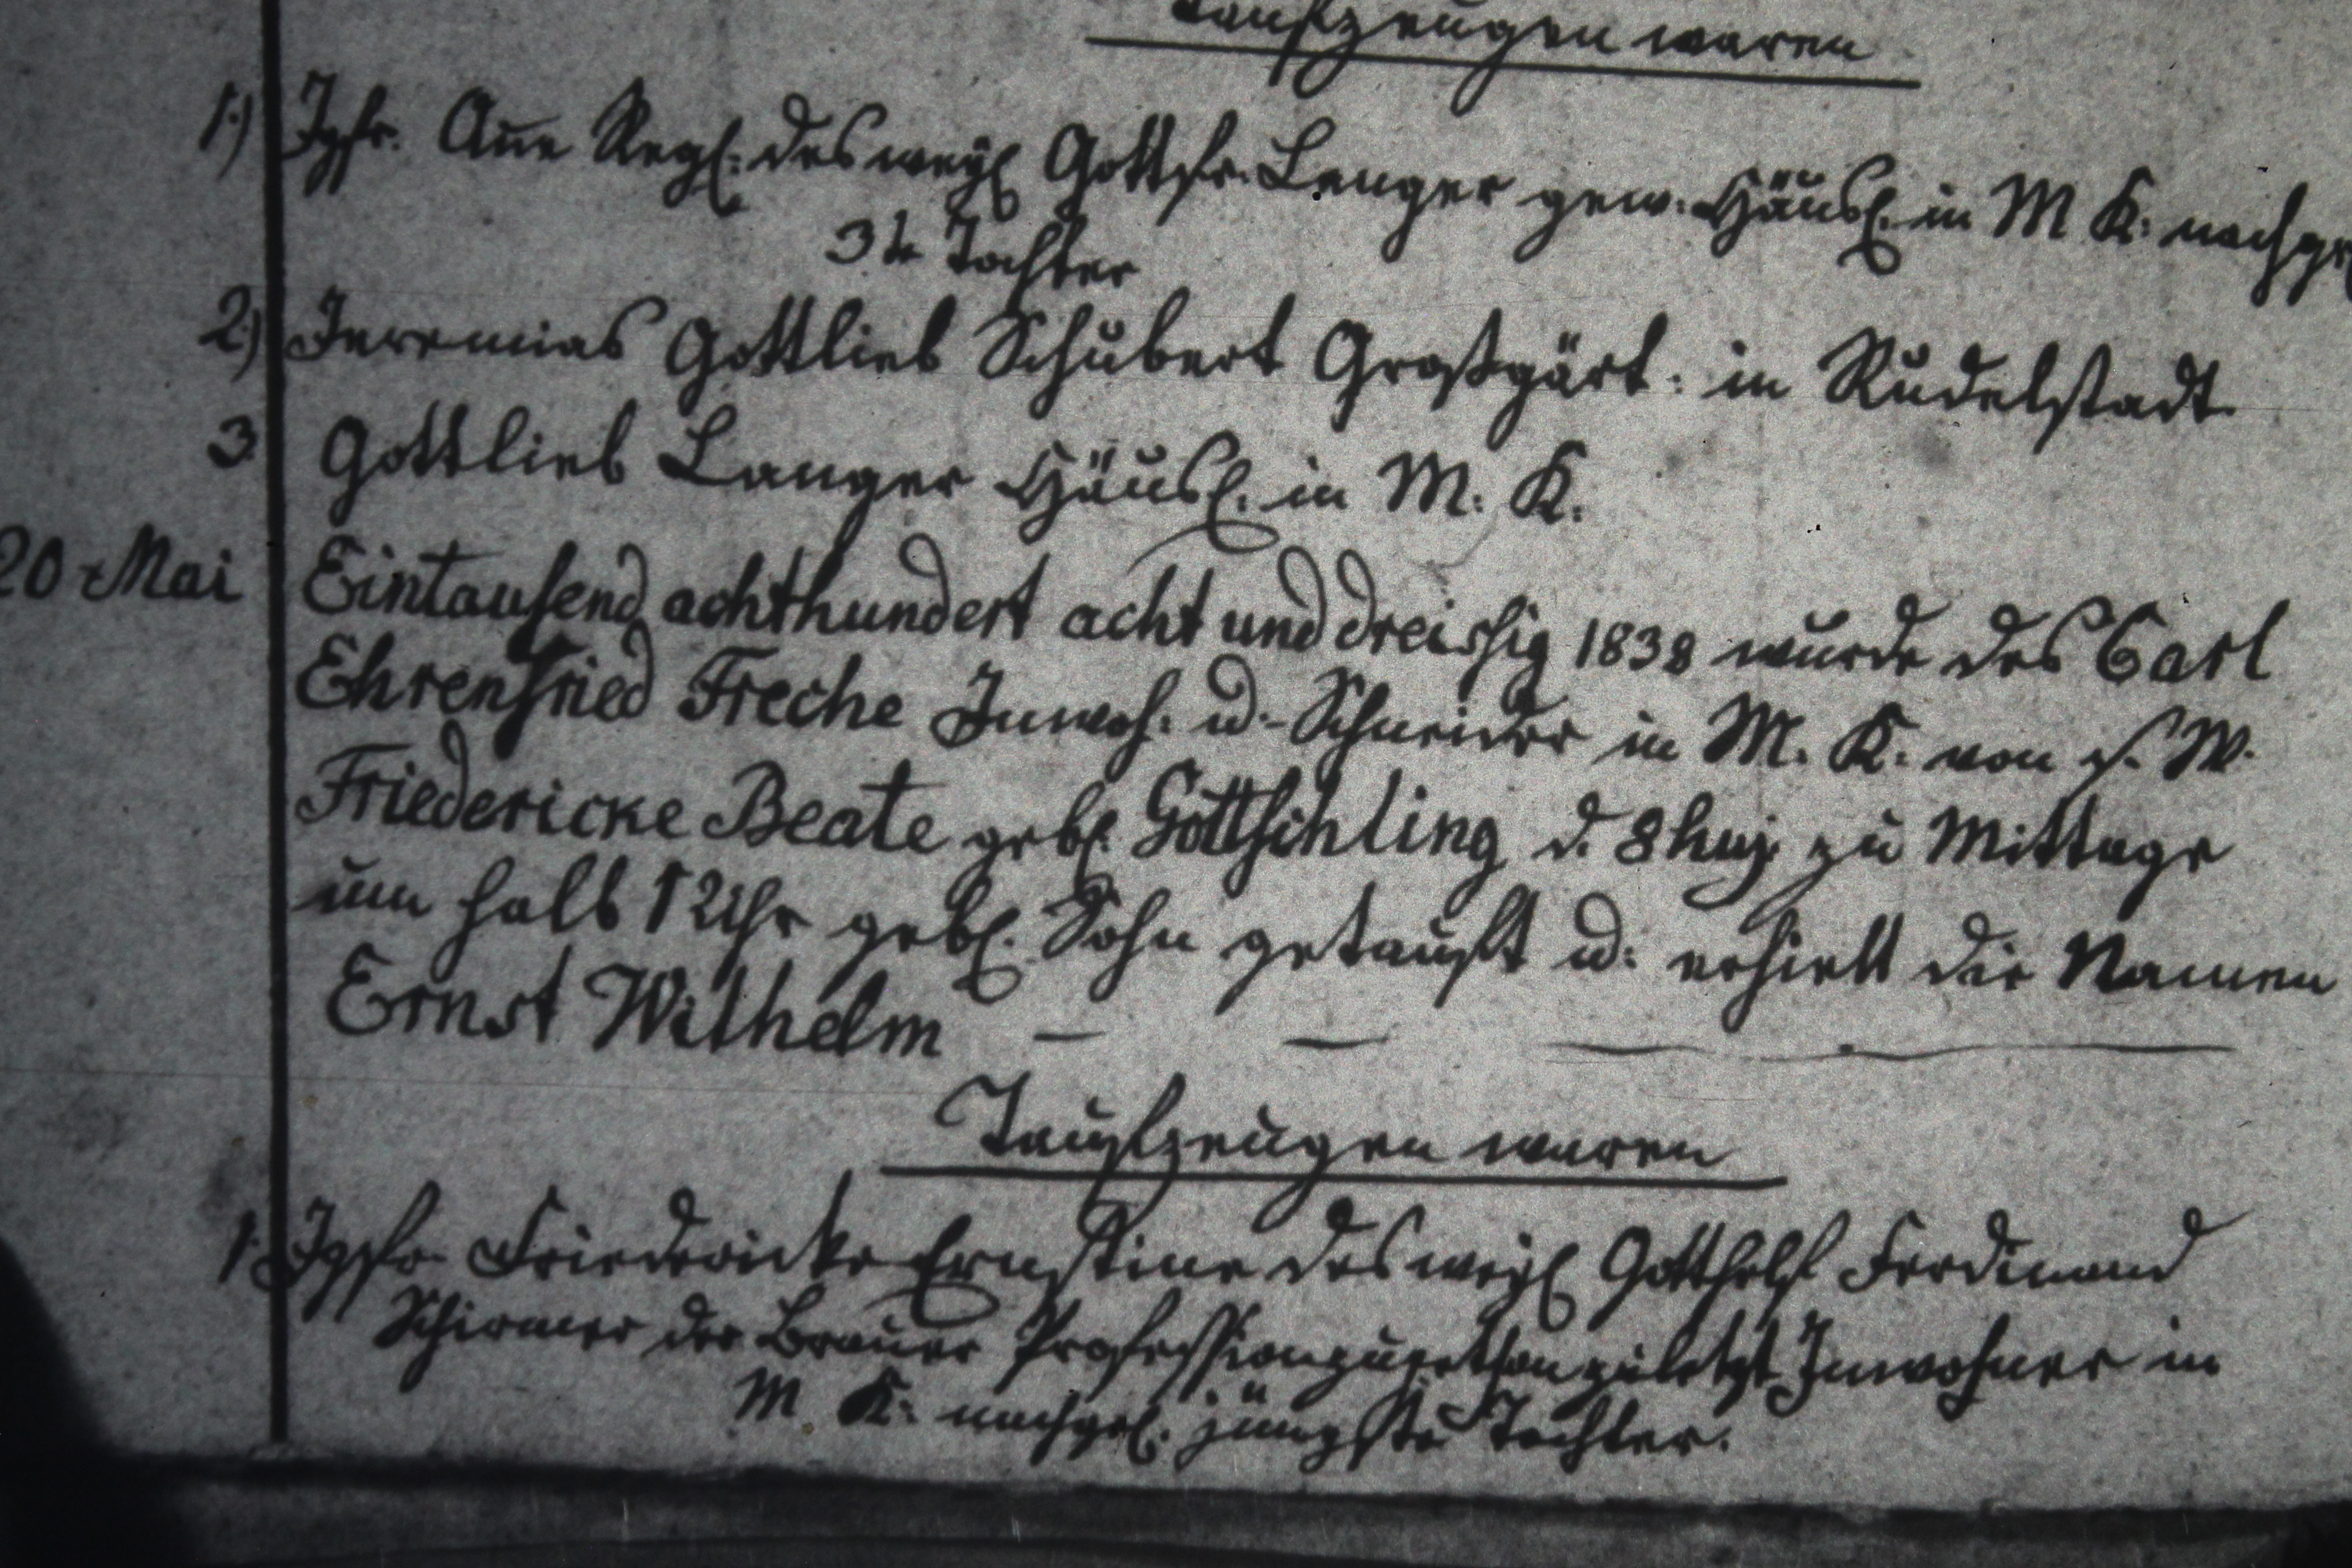 Taufzeugen waren
1.) Jgfr. Añe Regl: des weyl Gottfr. Langer gew. Häusl. in M K: nachgel
3te Tochter
2) Jeremias Gottlieb Schubert Großgärt: in Rudelstadt
3 Gottlieb Langer Häusl. in M: K.
20 Mai Eintausend achthundert acht und dreissig 1838 wurde des Carl
Ehrenfried Freche Inwoh. u. Schneider in M. K. von s. W.
Friedericke Beate gebl. Göttschling d. 8 huj. zu Mittage
um halb 12 Uhr gebl. Sohn getauft u: erhielt die Namen
Ernst Wilhelm — — —
Taufzeugen waren
1. Jgfr. Friedericke Ernstine des weyl Gotthelf Ferdinand
Schirmer der Brauer Profession zugethan zuletzt Inwohner in
M K: nachgel. jüngste Tochter.